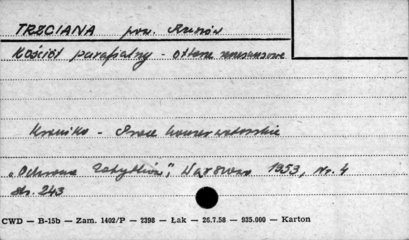 TRZCIANA pow.
Kościół parafialny - ołtarz renesansowe
Kronika - Prace konserwatorskie
"Ochrona Zabytków", Warszawa 1953, Nr. 4
str. 243
CWD — B-15b — Zam. 1402/P — 2398 — Łak — 26.7.58 — 935.000 — Karton